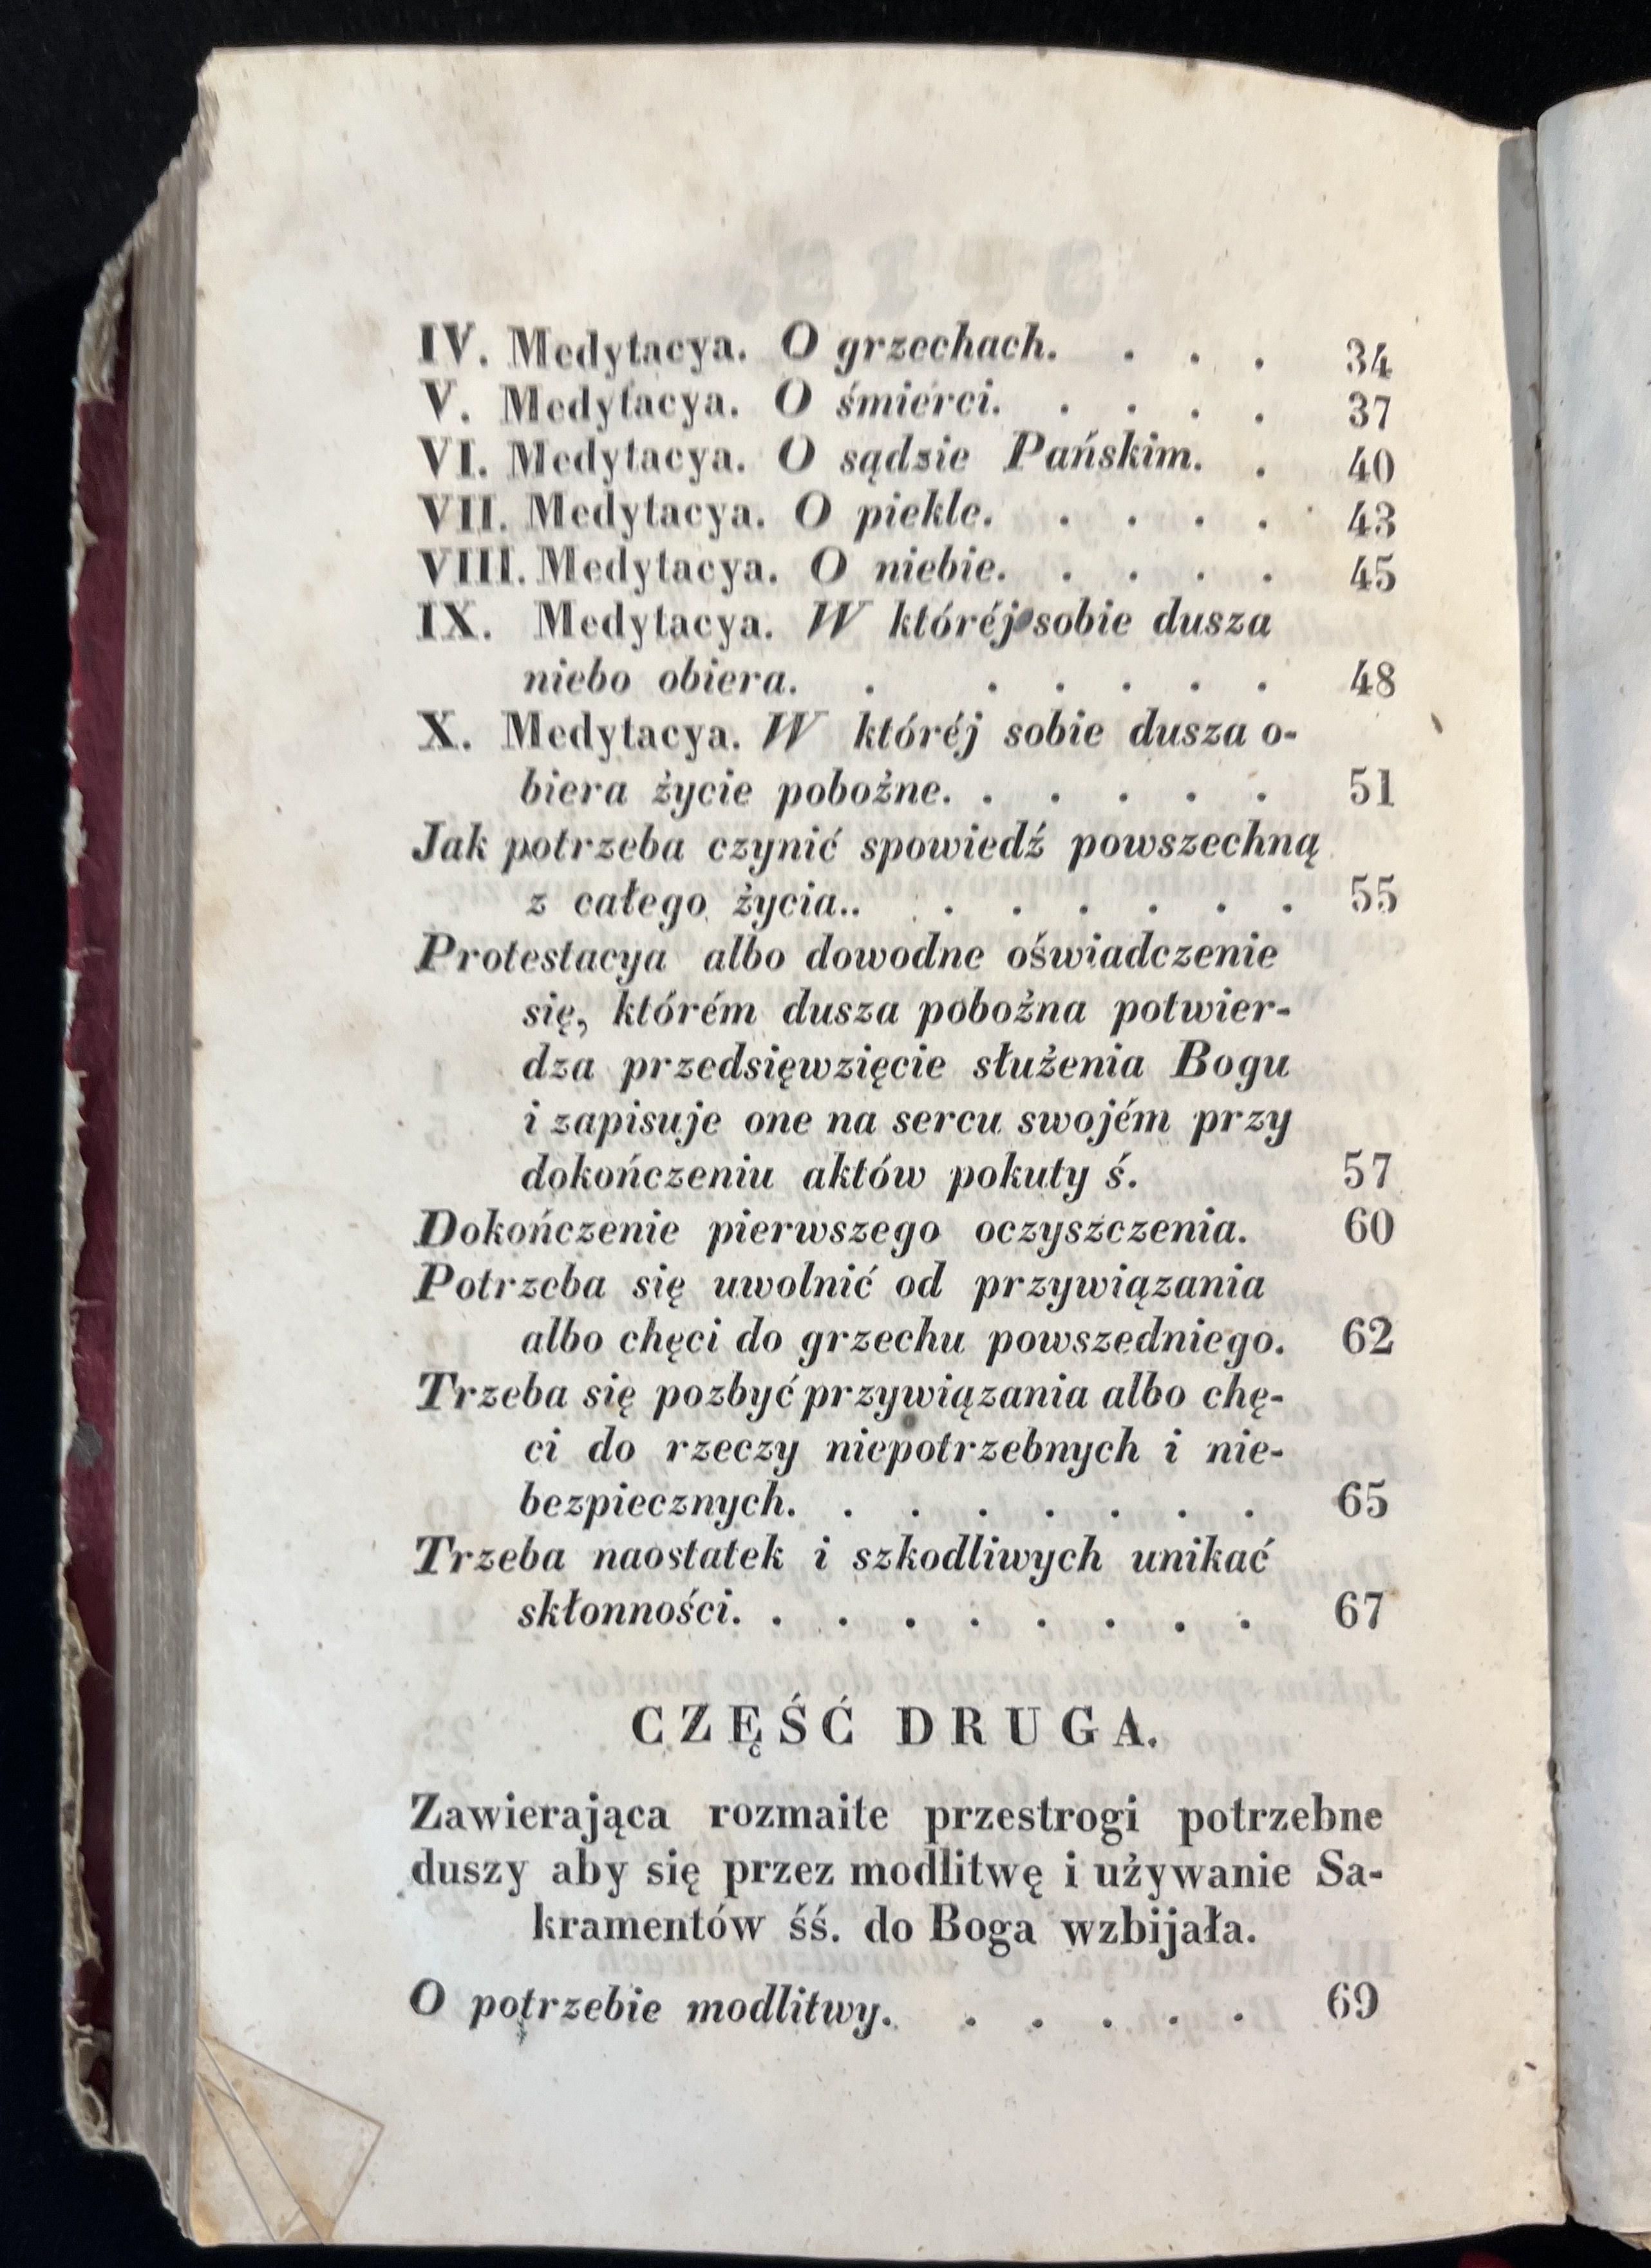 IV. Medytacya. O grzechach. . . . 34
V. Medytacya. O śmierci. . . . . 37
VI. Medytacya. O sądzie Pańskim. . 40
VII. Medytacya. O piekle. . . . . 43
VIII. Medytacya. O niebie. . . . . 45
IX. Medytacya. W któréj sobie dusza
niebo obiera. . . . . . . 48
X. Medytacya. W któréj sobie dusza o-
biera życie pobożne. . . . . . 51
Jak potrzeba czynić spowiedź powszechną
z całego życia.. . . . . . . 55
Protestacya albo dowodne oświadczenie
się, którém dusza pobożna potwier-
dza przedsięwzięcie służenia Bogu
i zapisuje one na sercu swojém przy
dokończeniu aktów pokuty ś. 57
Dokończenie pierwszego oczyszczenia. 60
Potrzeba się uwolnić od przywiązania
albo chęci do grzechu powszedniego. 62
Trzeba się pozbyć przywiązania albo chę-
ci do rzeczy niepotrzebnych i nie-
bezpiecznych. . . . . . . . 65
Trzeba naostatek i szkodliwych unikać
skłonności. . . . . . . . . 67
CZĘŚĆ DRUGA.
Zawierająca rozmaite przestrogi potrzebne
duszy aby się przez modlitwę i używanie Sa-
kramentów śś. do Boga wzbijała.
O potrzebie modlitwy. . . . . . 69